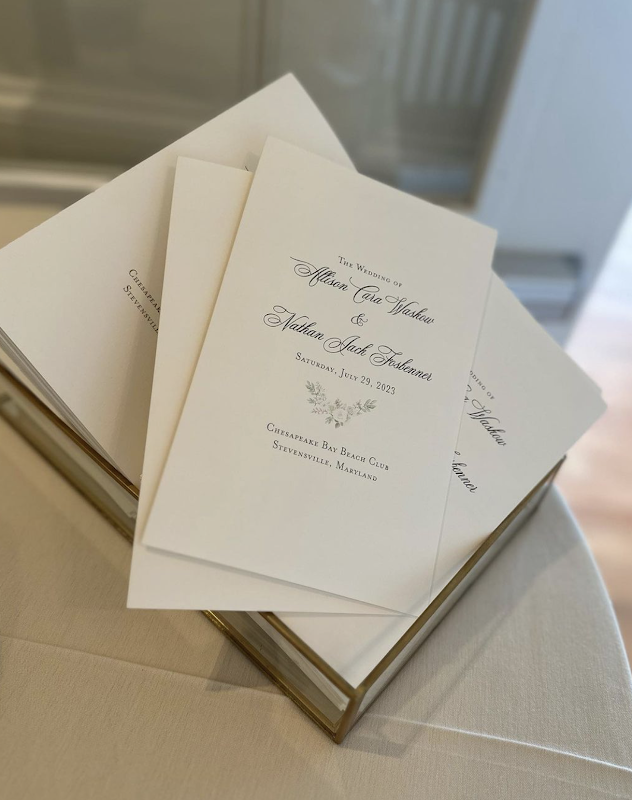 The Wedding of
Allison Cara Waskow
&
Nathan Jack Fosbenner
Saturday, July 29, 2023
Chesapeake Bay Beach Club
Stevensville, Maryland
Chesapeake
Stevensville,
Wedding of
Waskow